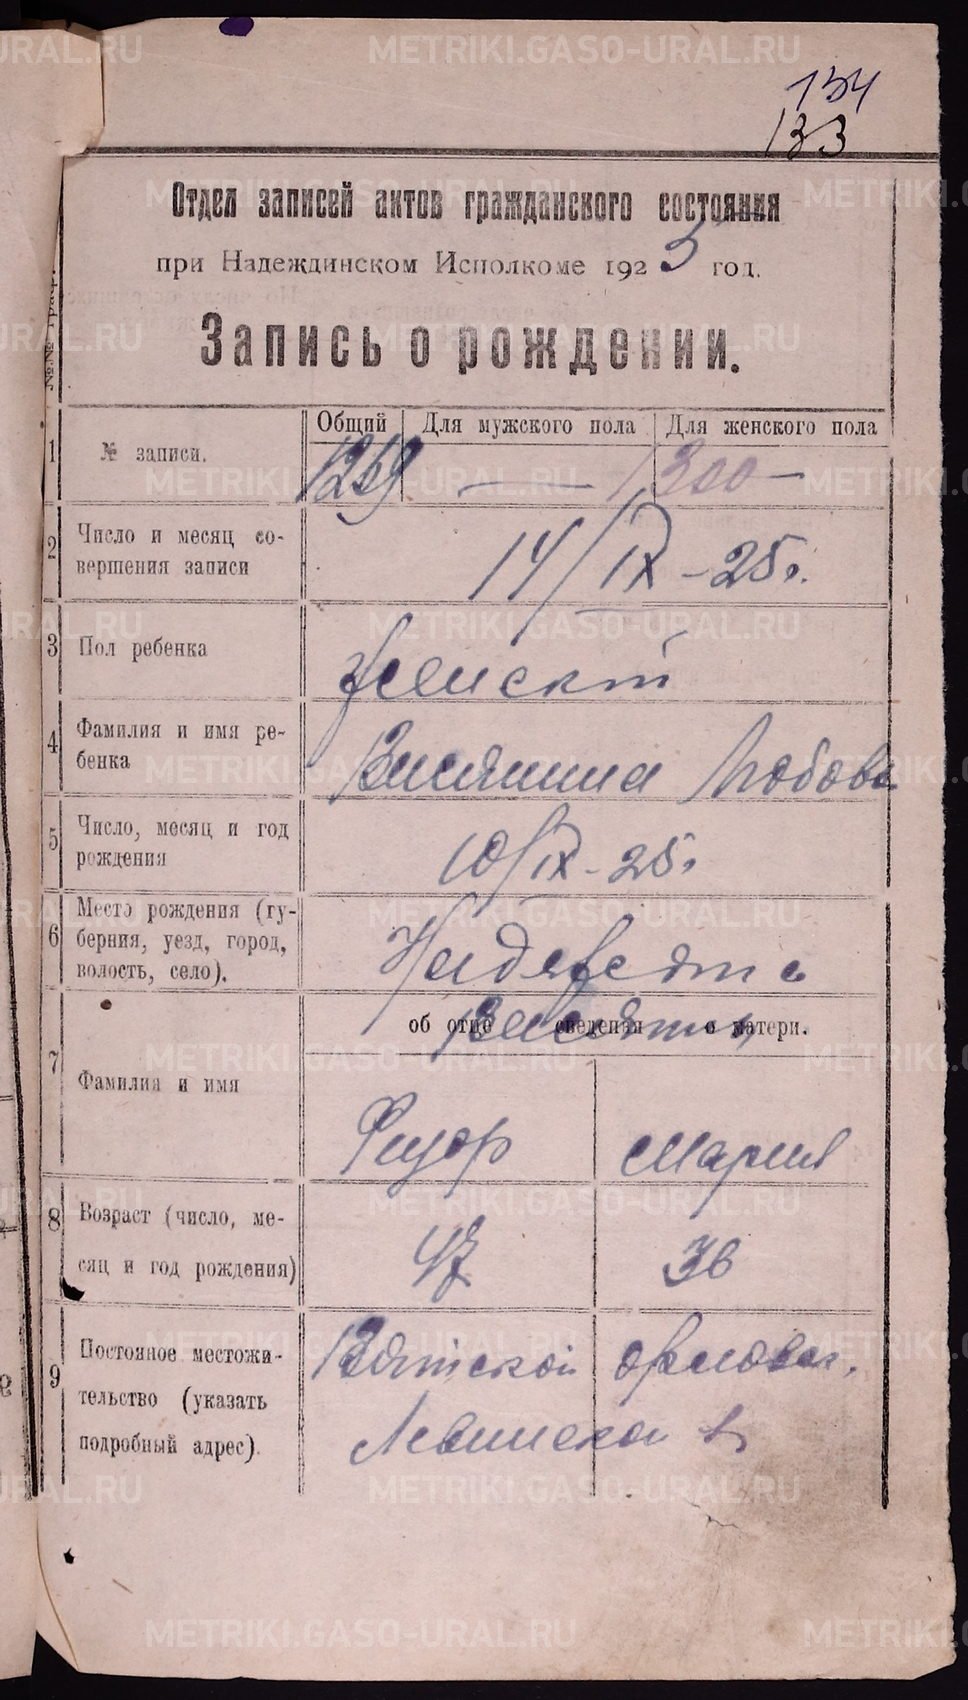 134
133
Отдел записей актов гражданского состояния
при Надеждинском Исполкоме 1925 год.
Запись о рождении.
№№ граф.
1 № записи.
Общий Для мужского пола Для женского пола
1269 — 1300 —
2 Число и месяц со-
вершения записи
14/IX - 25 г.
3 Пол ребенка
женский
4 Фамилия и имя ре-
бенка
Любовь
5 Число, месяц и год
рождения
10/IX - 25 г.
6 Место рождения (гу-
берния, уезд, город,
волость, село).
об отце сведения о матери.
7 Фамилия и имя
Мария
8 Возраст (число, ме-
сяц и год рождения)
47 36
9 Постоянное местожи-
тельство (указать
подробный адрес).
Вятской орловск.
METRIKI.GASO-URAL.RU